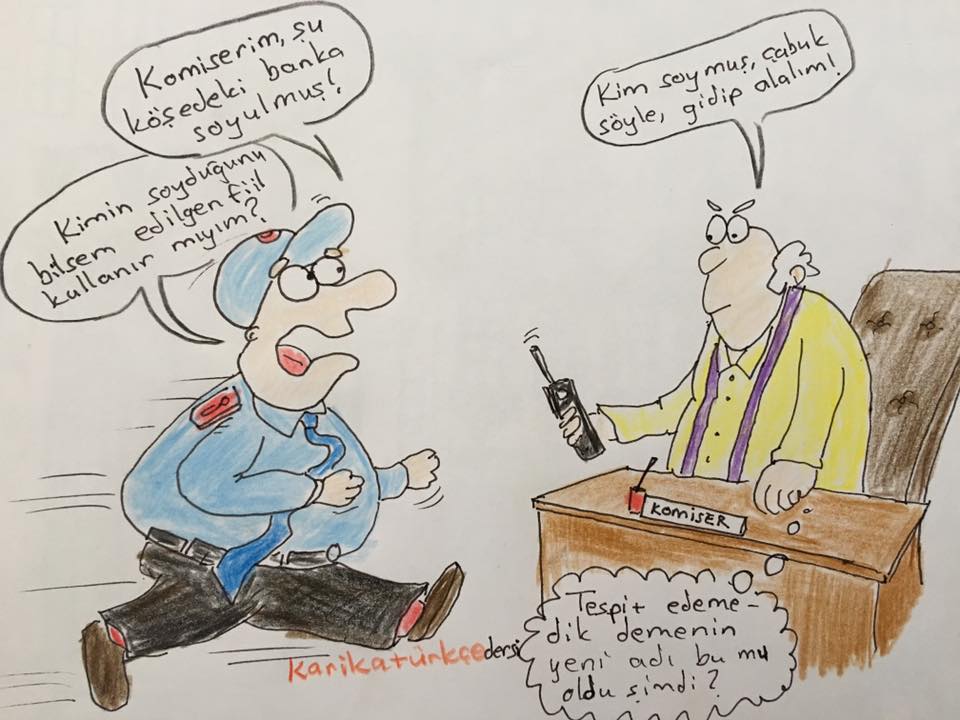 Komiserim, şu
köşedeki banka
soyulmuş!
Kim soymuş, çabuk
söyle, gidip alalım!
Kimin soyduğunu
bilsem edilgen fiil
kullanır mıyım?
KOMİSER
Tespit edeme-
dik demenin
yeni adı bu mu
oldu şimdi?
karikatürkçedersi